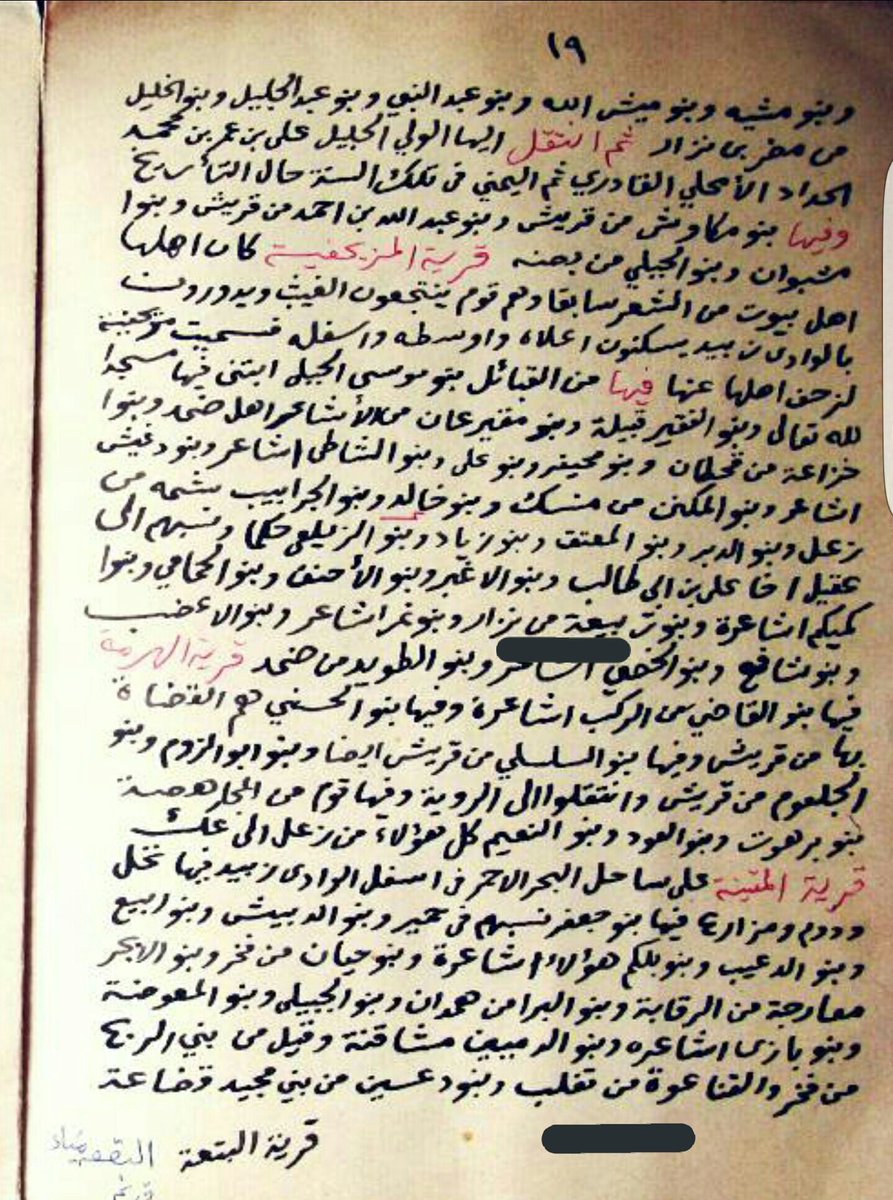 ١٩
وبنو مشيه وبنو ميش الله وبنو عبد النبي وبنو عبد الجليل وبنو الخليل
من مضر بن نزار ثم انتقل اليها الولي الجليل علي بن عمر بن محمد
الحداد الأهدلي القادري ثم اليمني في تلك السنة حال التأريخ
وفيها بنو مكاوش من قريش وبنو عبد الله بن احمد من قريش وبنوا
مشبوان وبنو الجيلي من قرية المزيحفية كان اهلها
اهل بيوت من الشعر سابقا وهم قوم ينتجعون الغيث ويدورون
بالوادي زبيد يسكنون اعلاه واوسطه واسفله فسميت مزيحفية
لزحف اهلها عنها فيها من القبائل بنو موسى الجيلي ابتنى فيها مسجدا
لله تعالى وبنو الفقير قبيلة وبنو مقيرعان من الأشاعر اهل ضمد وبنوا
خزاعة من قحطان وبنو محيفر وبنو علي وبنو الشاطي اشاعر وبنو دغيش
اشاعر وبنو المكين من منسك وبنو خالد وبنو الجرابيب من
زعل وبنو الدبر وبنو المعتق وبنو زياد وبنو الزيلعي حكما ونسبهم الى
عقيل اخا علي بن ابي طالب وبنو الاغبر وبنو الأحنف وبنو الحمامي وبنوا
كميكم اشاعرة وبنو ربيعة من نزار وبنو نمر اشاعر وبنو الاغضب
وبنو شافع وبنو وبنو الطويد من ضمد قرية الهرمة
فيها بنو القاضي من الركب اشاعرة وفيها بنو الحسني هم القضاة
بها من قريش وفيها بنو السلسلي من قريش ايضا وبنو ابو الزوم وبنو
الجلعوم من قريش وانتقلوا الى الروية وفيها قوم من المجاهصة
بنو برهوت وبنو العود وبنو النعيم كل هؤلاء من زعل الى عك
قرية المتينة على ساحل البحر الاحمر في اسفل الوادي زبيد فيها نخل
ودوم ومزارع فيها بنو جعفر نسبهم في حمير وبنو الدبيش وبنو ربيع
وبنو الدعيب وبنو بلكم هؤلاء اشاعرة وبنو حيان من فخر وبنو الابحر
معارجة من الرقابة وبنو البرا من همدان وبنو الجبيلي وبنو المعوضة
وبنو بازي اشاعره وبنو الدميين مشاقنة وقيل من بني الريع
من فخر والقناعوة من تغلب وبنو دعسين من بني مجيد قضاعة
قرية البقعة
البقعة